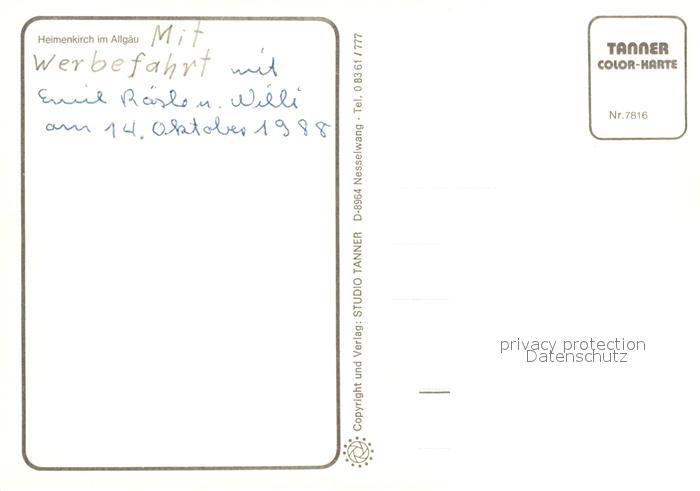 Heimenkirch im Allgäu Mit
Werbefahrt mit
Emil Rösle u. Willi
am 14. Oktober 1988
Copyright und Verlag: STUDIO TANNER D-8964 Nesselwang · Tel. 0 83 61 / 777
TANNER
COLOR-KARTE
Nr. 7816
privacy protection
Datenschutz